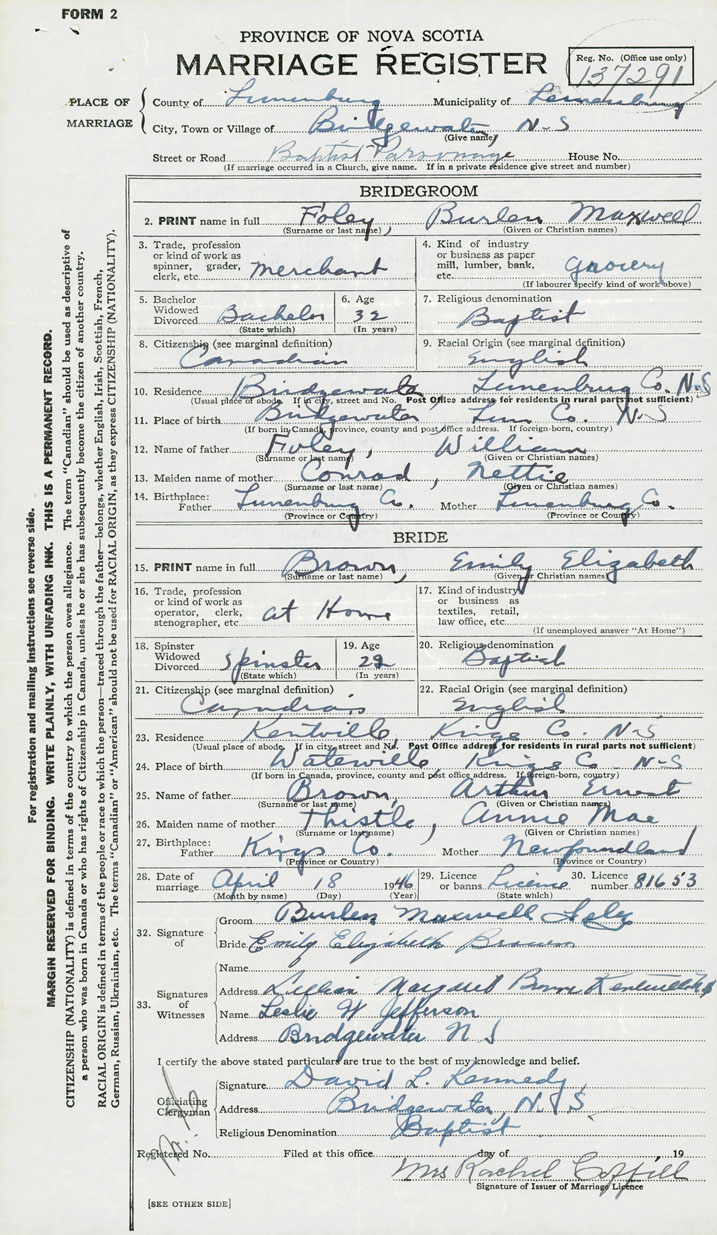 FORM 2
PROVINCE OF NOVA SCOTIA
MARRIAGE REGISTER
Reg. No. (Office use only)
137291
PLACE OF MARRIAGE
County of Lunenburg Municipality of Lunenburg
City, Town or Village of Bridgewater N-S
(Give name)
Street or Road Baptist Parsonage House No.
(If marriage occurred in a Church, give name. If in a private residence give street and number)
BRIDEGROOM
2. PRINT name in full Foley, Burlen Maxwell
(Surname or last name) (Given or Christian names)
3. Trade, profession or kind of work as spinner, grader, clerk, etc. merchant
4. Kind of industry or business as paper mill, lumber, bank, etc. grocery
(If labourer specify kind of work above)
5. Bachelor Widowed Divorced Bachelor
(State which)
6. Age 32
(In years)
7. Religious denomination
Baptist
8. Citizenship (see marginal definition)
Canadian
9. Racial Origin (see marginal definition)
English
10. Residence Bridgewater Lunenburg Co. N-S
(Usual place of abode. If in city, street and No. Post Office address for residents in rural parts not sufficient)
11. Place of birth Bridgewater Lun Co. N-S
(If born in Canada, province, county and post office address. If foreign-born, country)
12. Name of father Foley, William
(Surname or last name) (Given or Christian names)
13. Maiden name of mother Conrad, Nettie
(Surname or last name) (Given or Christian names)
14. Birthplace: Father Lunenburg Co. Mother Lunenburg Co.
(Province or Country) (Province or Country)
BRIDE
15. PRINT name in full Brown, Emily Elizabeth
(Surname or last name) (Given or Christian names)
16. Trade, profession or kind of work as operator, clerk, stenographer, etc. at Home
17. Kind of industry or business as textiles, retail, law office, etc.
(If unemployed answer "At Home")
18. Spinster Widowed Divorced Spinster
(State which)
19. Age 22
(In years)
20. Religious denomination
Baptist
21. Citizenship (see marginal definition)
Canadian
22. Racial Origin (see marginal definition)
English
23. Residence Kentville, Kings Co. N-S
(Usual place of abode. If in city, street and No. Post Office address for residents in rural parts not sufficient)
24. Place of birth Waterville, Kings Co N-S
(If born in Canada, province, county and post office address. If foreign-born, country)
25. Name of father Brown, Arthur Ernest
(Surname or last name) (Given or Christian names)
26. Maiden name of mother Thistle, Annie Mae
(Surname or last name) (Given or Christian names)
27. Birthplace: Father Kings Co. Mother Newfoundland
(Province or Country) (Province or Country)
28. Date of marriage April 18 1946
(Month by name) (Day) (Year)
29. Licence or banns License
(State which)
30. Licence number 81653
32. Signature of
Groom Burlen Maxwell Foley
Bride Emily Elizabeth Brown
33. Signatures of Witnesses
Name
Address Lillian Margaret Kentville N S
Name Leslie W Jefferson
Address Bridgewater N S
I certify the above stated particulars are true to the best of my knowledge and belief.
Officiating Clergyman
Signature David L. Kennedy
Address Bridgewater, N. S.
Religious Denomination Baptist
Registered No. Filed at this office day of 19
Mrs Rachel Coffill
Signature of Issuer of Marriage Licence
[SEE OTHER SIDE]
For registration and mailing instructions see reverse side.
MARGIN RESERVED FOR BINDING. WRITE PLAINLY, WITH UNFADING INK. THIS IS A PERMANENT RECORD.
CITIZENSHIP (NATIONALITY) is defined in terms of the country to which the person owes allegiance. The term "Canadian" should be used as descriptive of
a person who was born in Canada or who has rights of Citizenship in Canada, unless he or she has subsequently become the citizen of another country.
RACIAL ORIGIN is defined in terms of the people or race to which the person—traced through the father—belongs, whether English, Irish, Scottish, French,
German, Russian, Ukrainian, etc. The terms "Canadian" or "American" should not be used for RACIAL ORIGIN, as they express CITIZENSHIP (NATIONALITY).